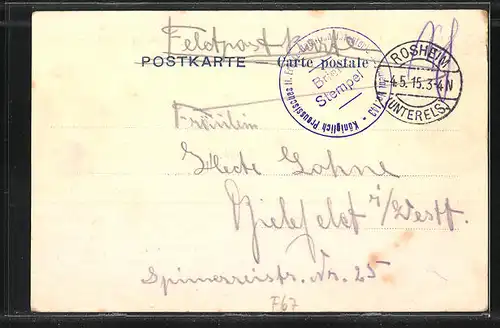 Feldpost Karte
POSTKARTE Carte postale
Königlich Preussisches II.
Brief
Stempel
ROSHEIM
4.5.15.3-4N
(UNTERELS.)
Fräulein
Bielefeld i/Westf.
Spinnereistr. Nr. 25
F67